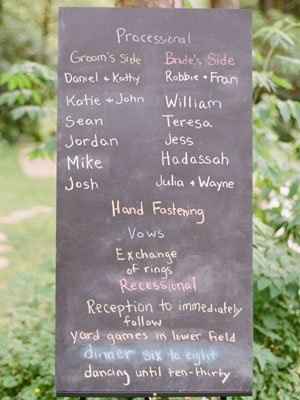 Processional
Groom's Side Bride's Side
Daniel + Kathy Robbie + Fran
Katie + John William
Sean Teresa
Jordan Jess
Mike Hadassah
Josh Julia + Wayne
Hand Fastening
Vows
Exchange
of rings
Recessional
Reception to immediately
follow
yard games in lower field
dinner six to eight
dancing until ten-thirty